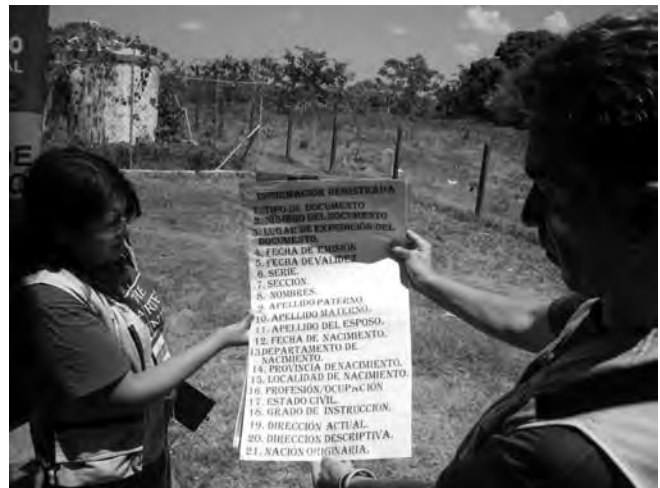 O
AL
E
DE
O
INFORMACIÓN REGISTRADA
1. TIPO DE DOCUMENTO
2. NUMERO DEL DOCUMENTO
3. LUGAR DE EXPEDICIÓN DEL
DOCUMENTO.
4. FECHA DE EMISIÓN
5. FECHA DE VALIDEZ
6. SERIE.
7. SECCIÓN.
8. NOMBRES.
9. APELLIDO PATERNO.
10. APELLIDO MATERNO.
11. APELLIDO DEL ESPOSO.
12. FECHA DE NACIMIENTO.
13.DEPARTAMENTO DE
NACIMIENTO.
14. PROVINCIA DENACIMIENTO.
15. LOCALIDAD DE NACIMIENTO.
16. PROFESIÓN/OCUPACIÓN
17. ESTADO CIVIL.
18. GRADO DE INSTRUCCION.
19. DIRECCIÓN ACTUAL.
20. DIRECCION DESCRIPTIVA.
21. NACIÓN ORIGINARIA.